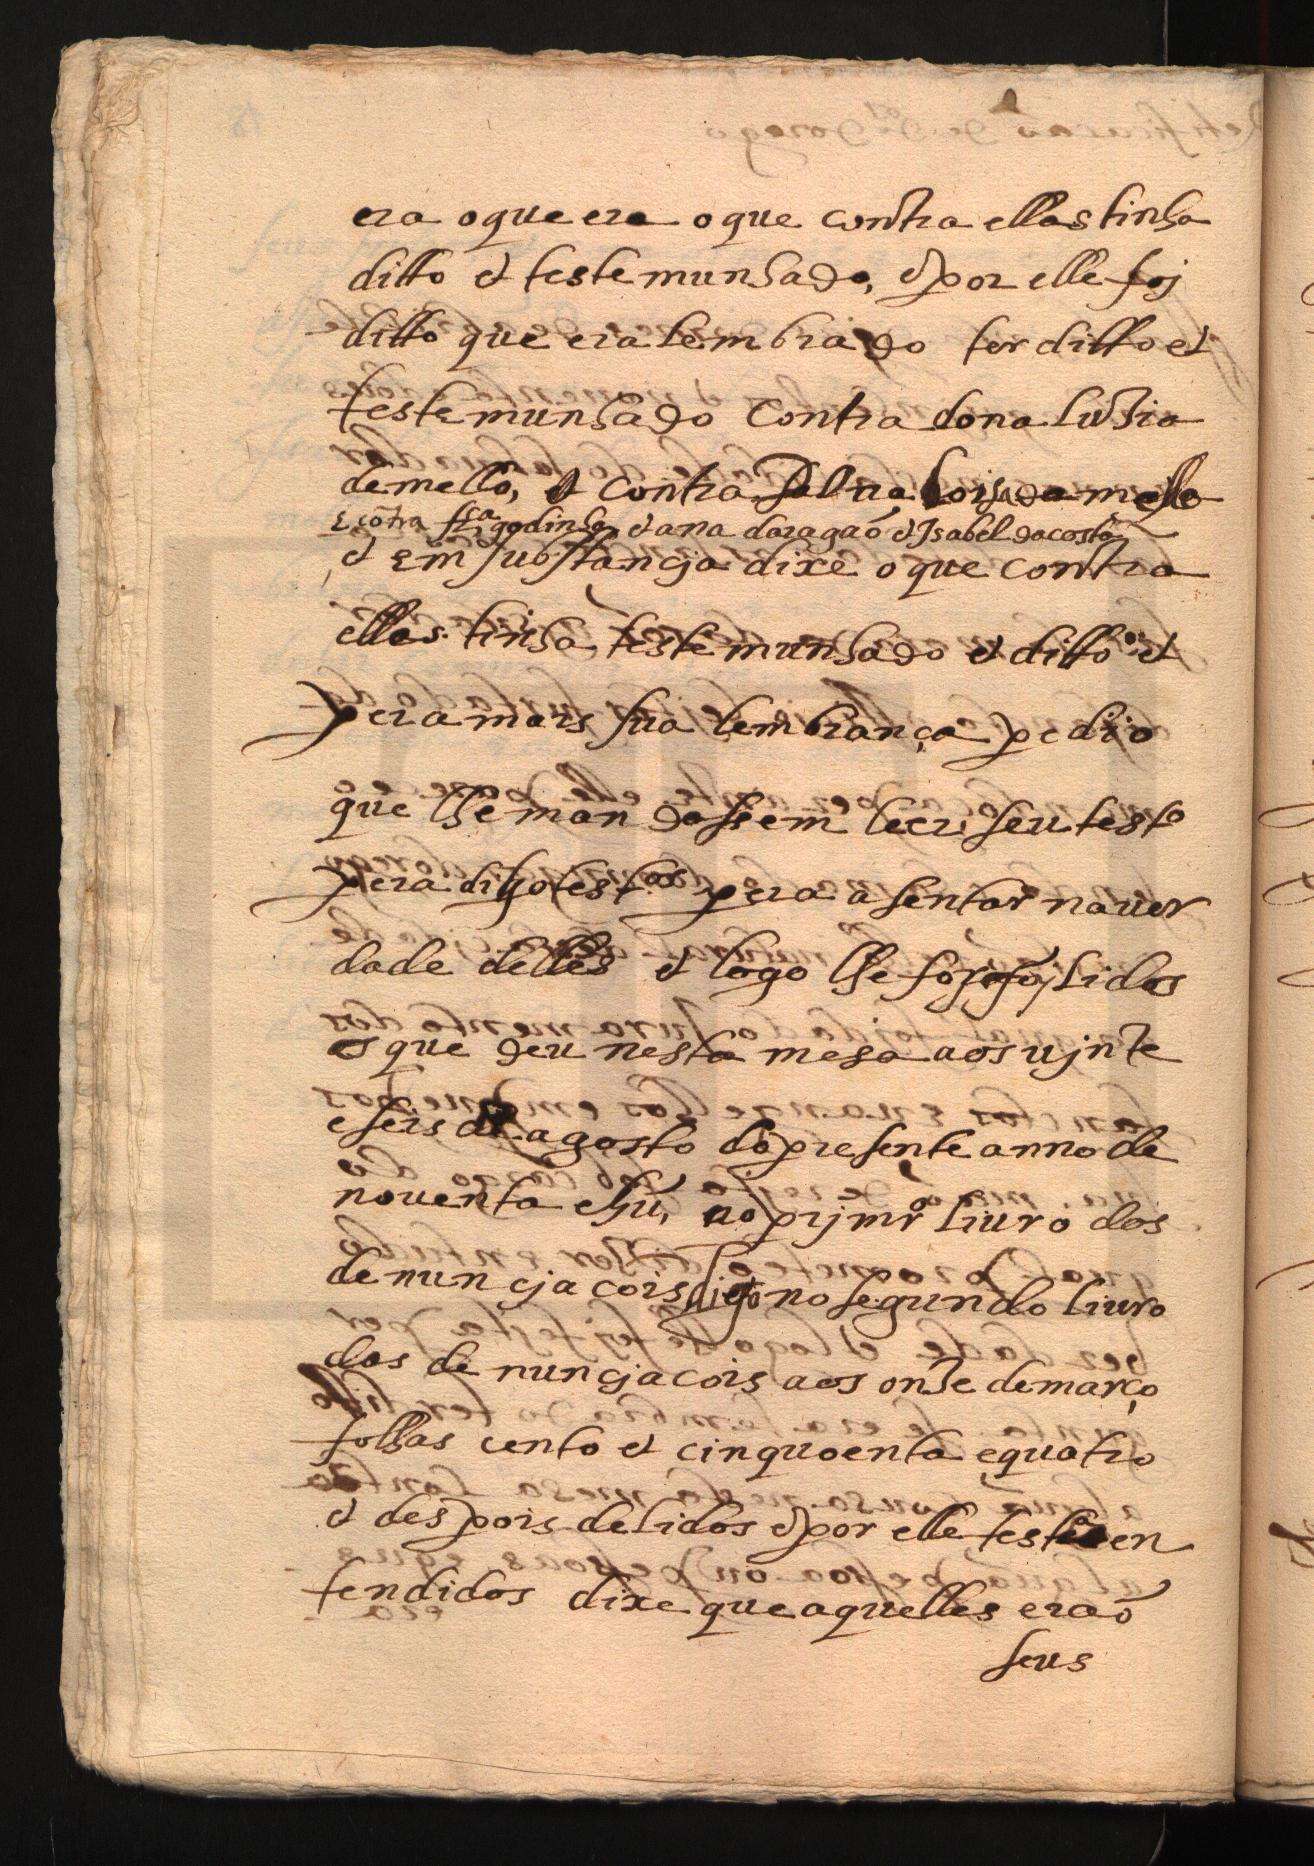 era o que era o que contra ellas tinha
ditto et testemunhado, et por elle foj
ditto que era lembrado ter ditto et
testemunhado contra dona Lusia
de mello, et contra dona Loisa de mello
E cõtra frca godinha et ana daragaõ et Isabel dacosta
et Em substancja dixe o que contra
ellas tinha testemunhado et ditto et
pera mais sua lembrança pedio
que lhe mandassem leer seu testo
pera digo testos pera asentar na ver
dade delles et logo lhe foj lidos
os que deu nesta mesa aos vjnte
e seis de agosto do presente anno de
noventa e hũ, no prjmro Livro das
denuncjacois digo no segundo livro
das denuncjacois aos onse de março
folhas cento et cinquoenta e quatro
et despois de lidos et por elle testa en
tendidos dixe que aquelles eraõ
seus